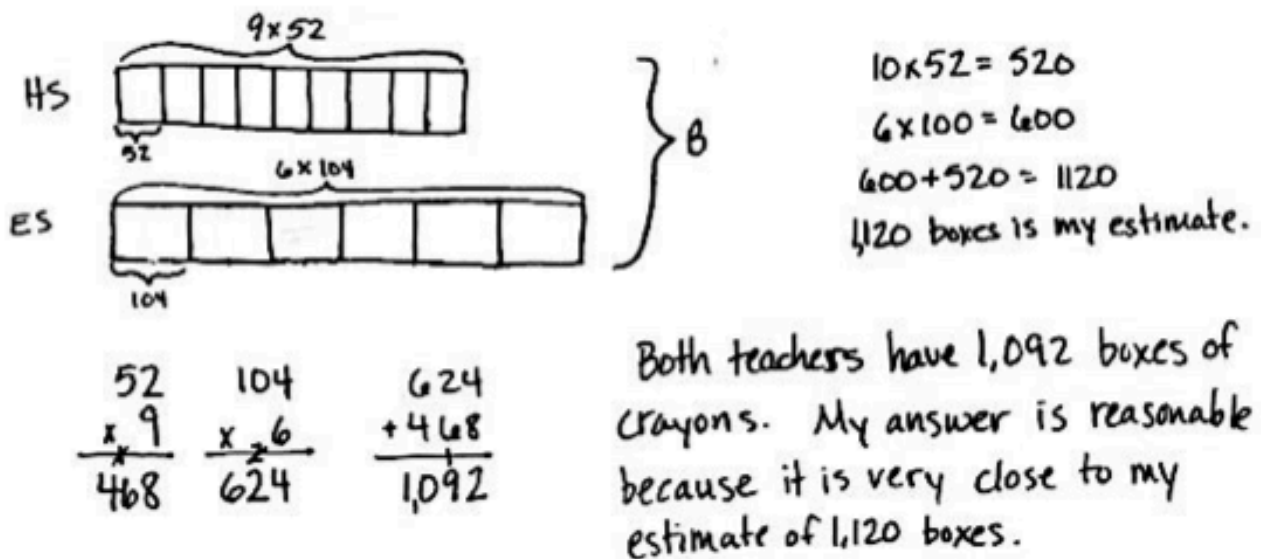 9 x 52
HS
52
B
6 x 104
ES
104
10 x 52 = 520
6 x 100 = 600
600 + 520 = 1120
1,120 boxes is my estimate.
52
x 9
468
104
x 2 6
624
624
+ 468
1
1,092
Both teachers have 1,092 boxes of
crayons. My answer is reasonable
because it is very close to my
estimate of 1,120 boxes.